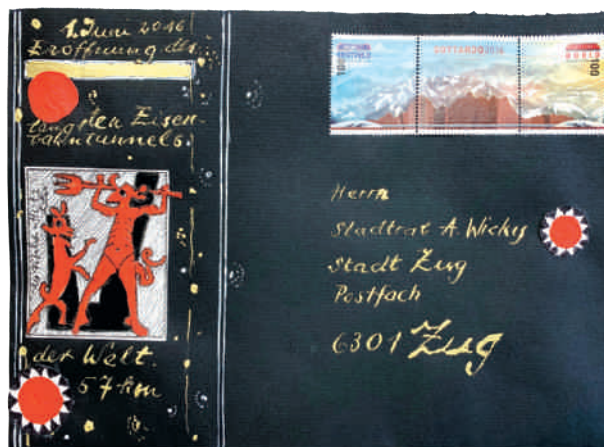 1. Juni 2016
Eröffnung des
längsten Eisen-
bahntunnels.
der Welt.
57 km
100
100
Herrn
Stadtrat A. Wickis
Stadt Zug
Postfach
6301 Zug